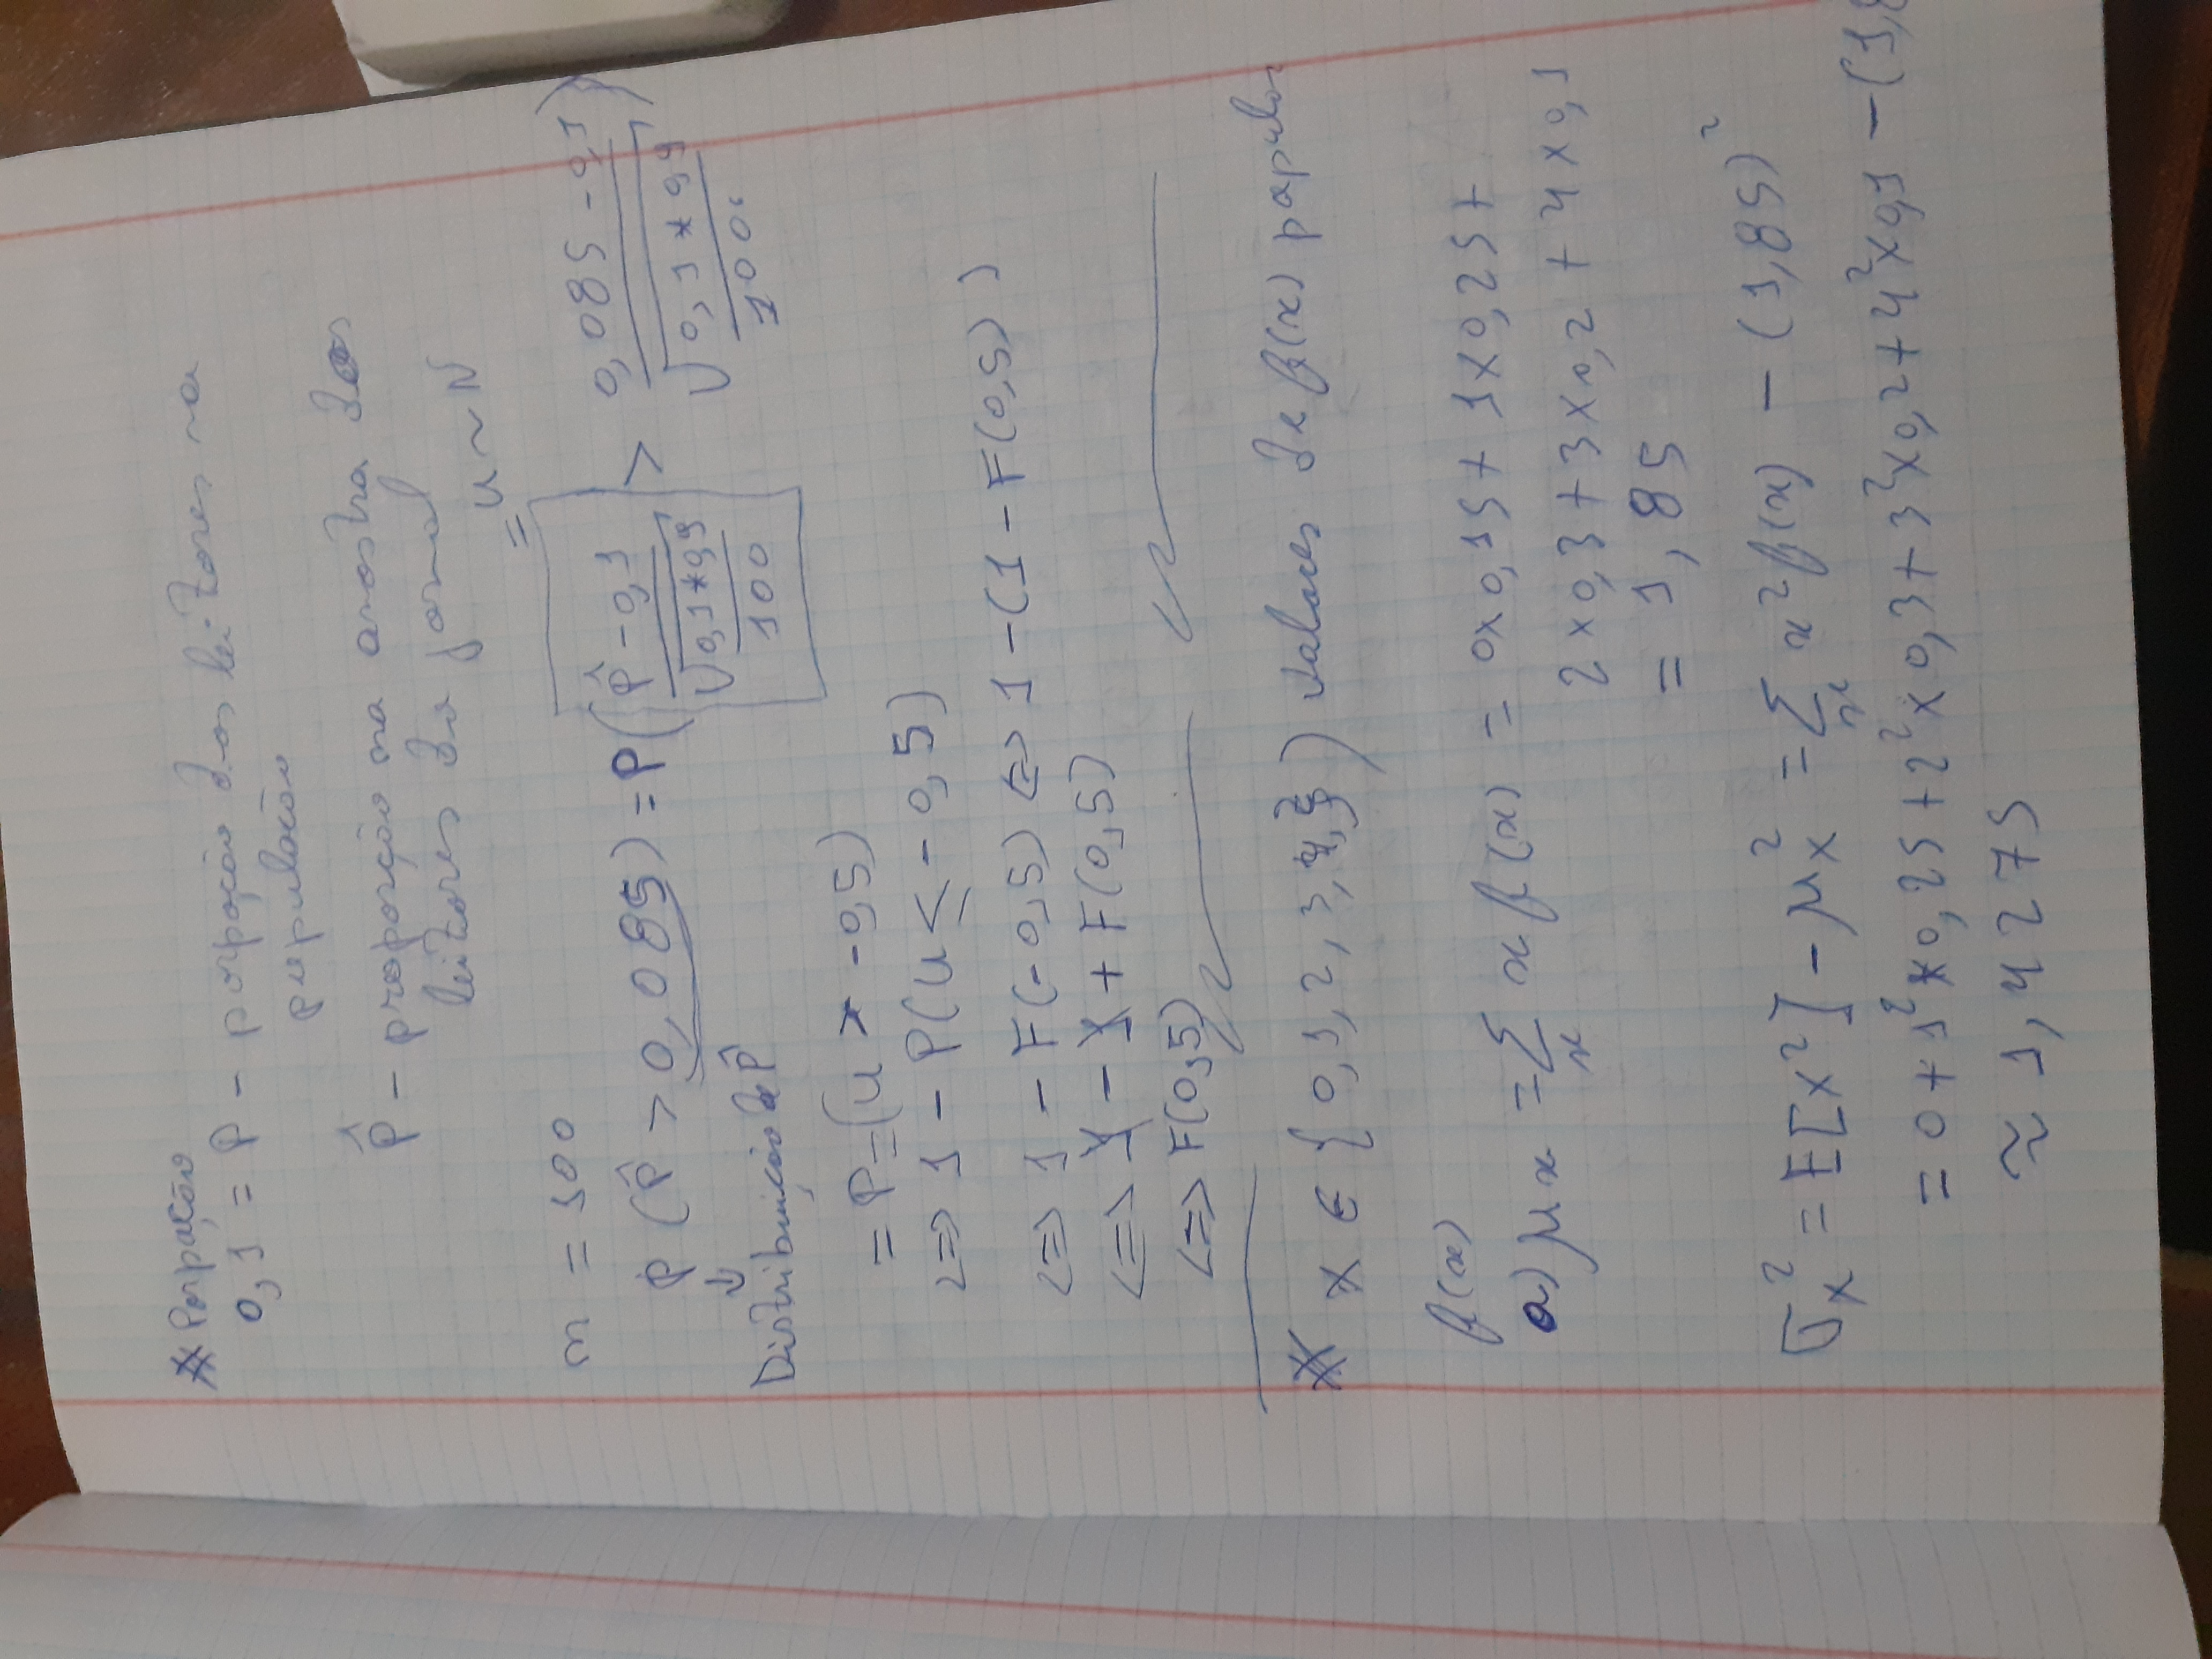 * Porpação
0,1 = P - porpoção dos leitores na
população
p̂ - proporção na amostra dos
leitores do jornal
= U ~ N
n = 100
P (p̂ > 0,085) = P( (p̂ - 0,1) / √(0,1*0,9 / 100) > (0,085 - 0,1) / √(0,1*0,9 / 100) )
↓
Distribuição de p̂
= P=(U > -0,5)
<=> 1 - P(U ≤ -0,5)
<=> 1 - F(-0,5) <=> 1 - (1 - F(0,5))
<=> 1 - 1 + F(0,5)
<=> F(0,5)
* X ∈ {0, 1, 2, 3, 4, ) Valores de f(x)
f(x)
a) μx = Σx x f(x) = 0x0,15 + 1x0,25 +
2x0,3 + 3x0,2 + 4x0,1
= 1,85
σx² = E[X²] - μx² = Σx x² f(x) - (1,85)²
= 0 + 1² x 0,25 + 2² x 0,3 + 3² x 0,2 + 4² x 0,1 - (1,8
≈ 1,4275